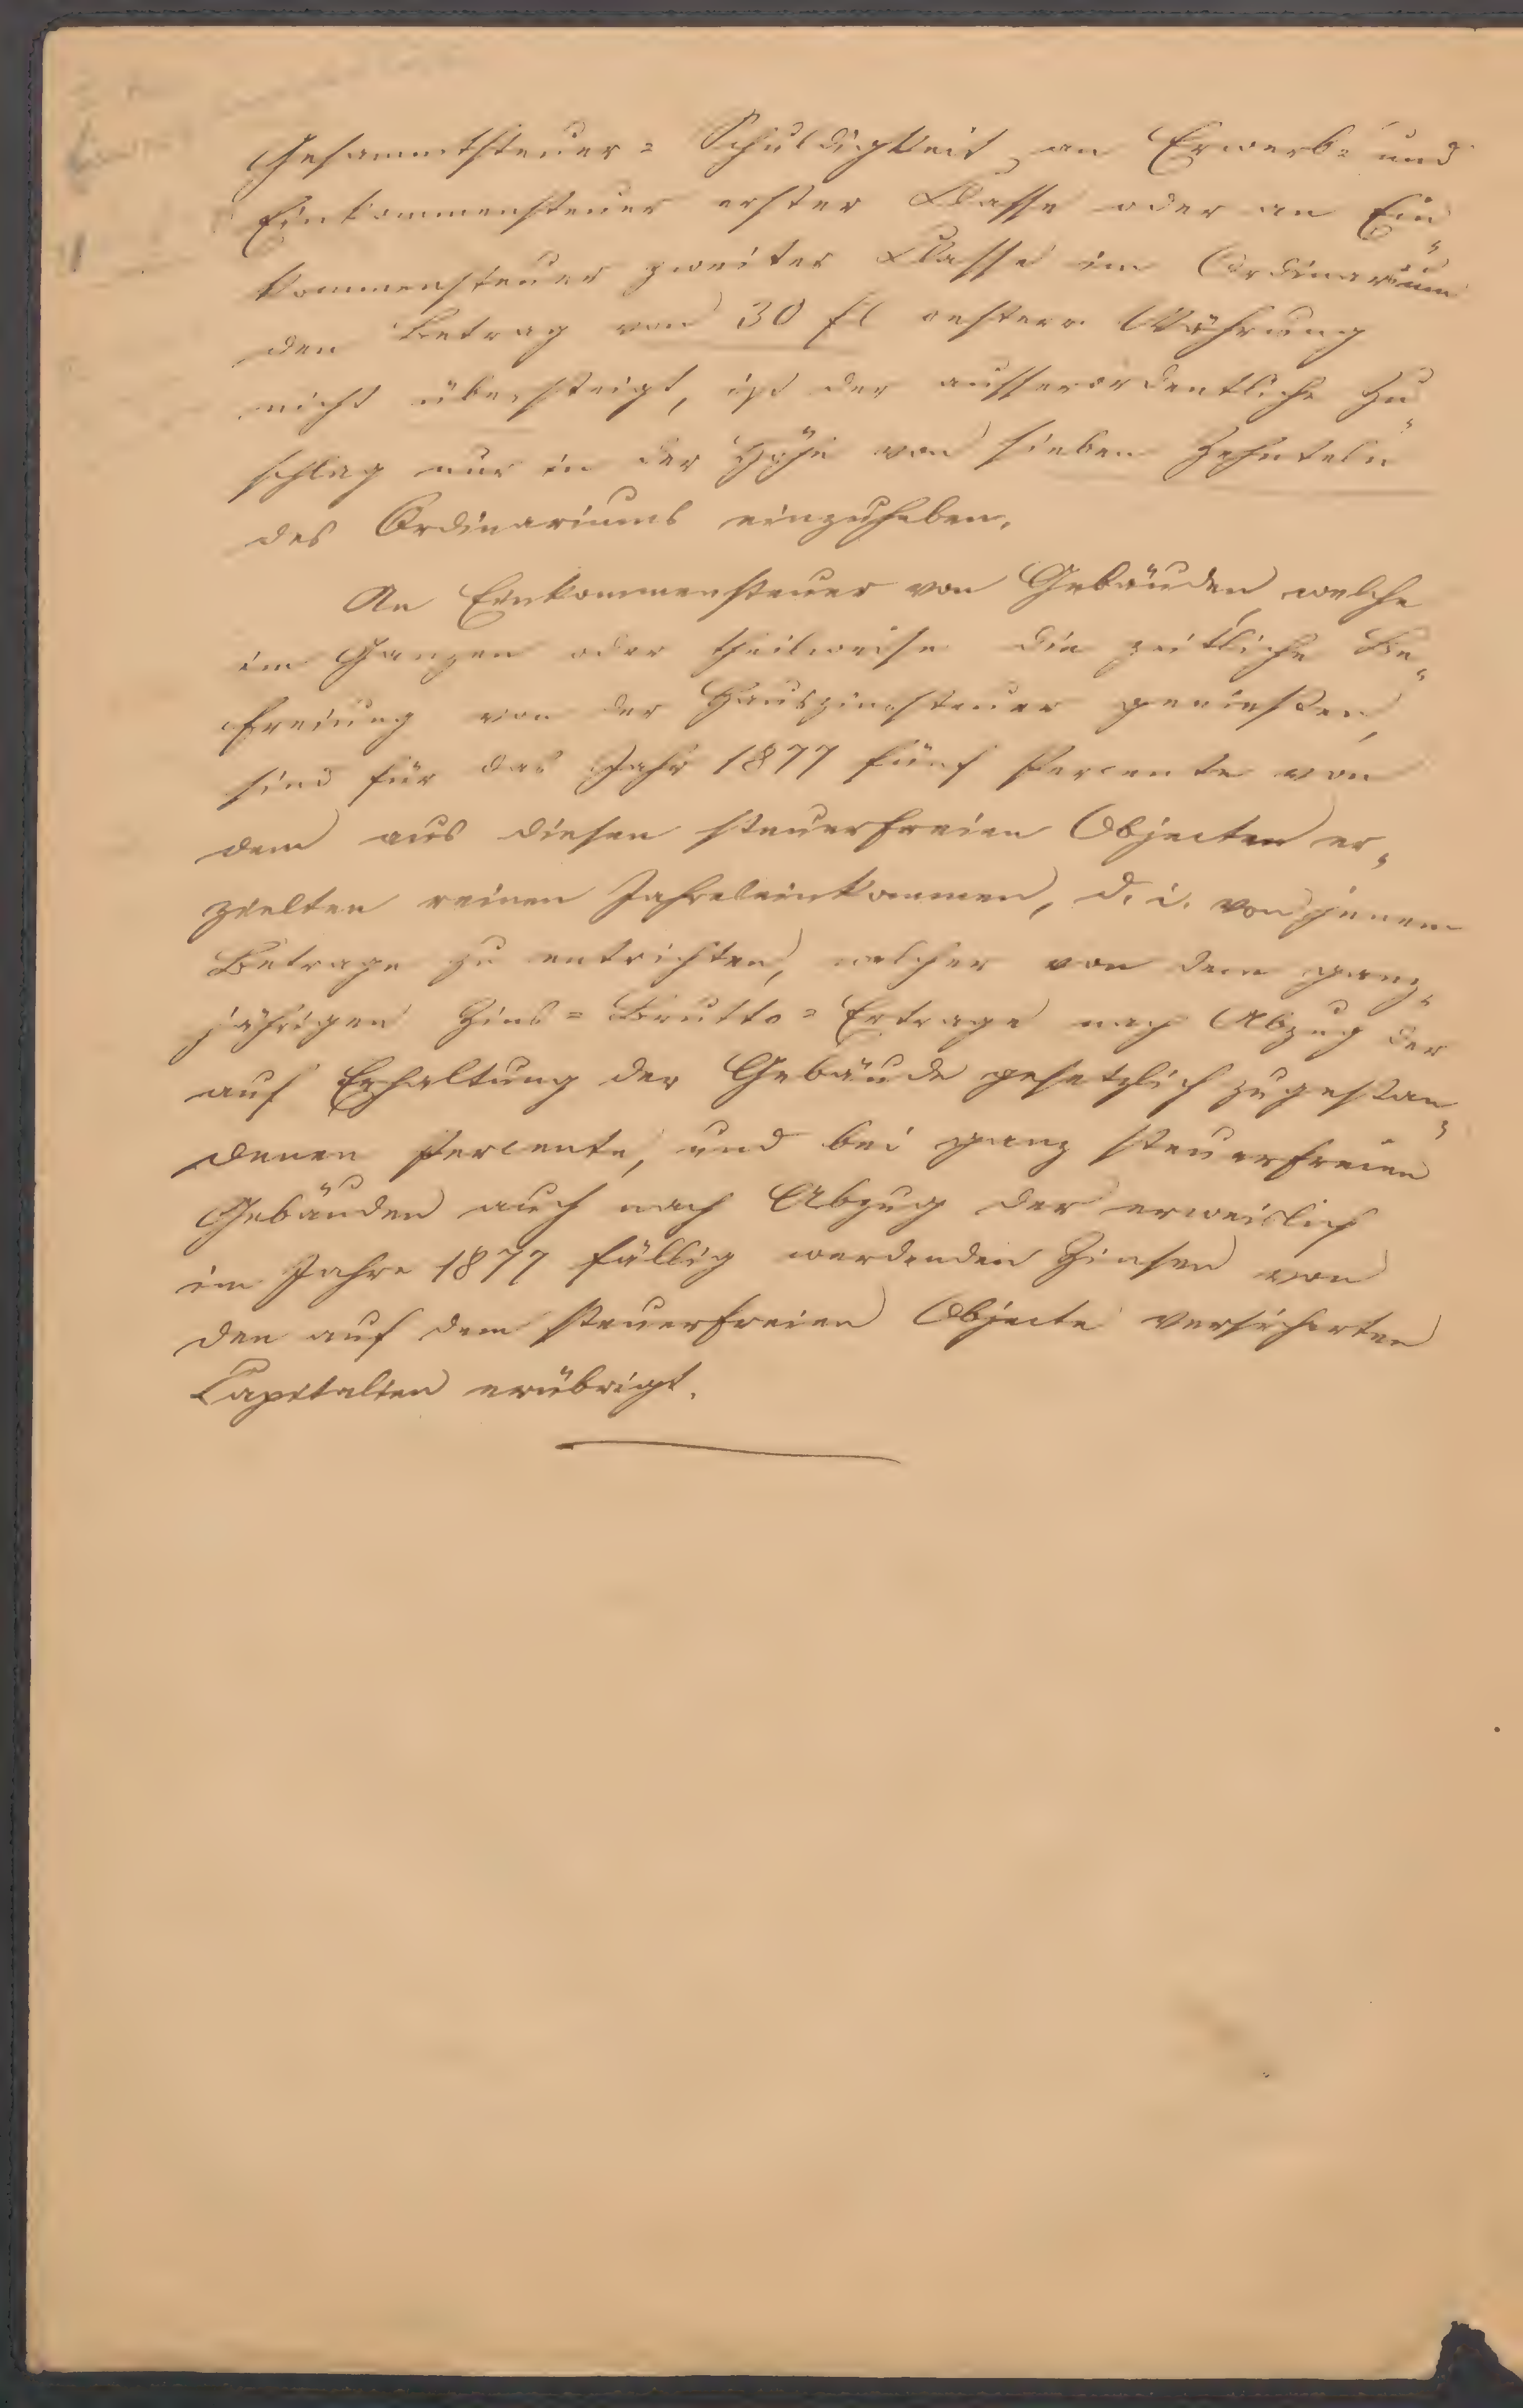 Gesammtsteuer = Schuldigkeit an Erwerb= und
Einkommensteuer erster Klasse oder an Ein„
kommensteuer zweiter Klasse im Ordinarium
den Betrag von 30 fl oesterr. Währung
nicht übersteigt, ist der ausserordentliche Zu„
schlag nur in der Höhe von sieben Zehnteln
des Ordinariums einzuheben.
An Einkommensteuer von Gebäuden, welche
im Ganzen oder theilweise die zeitliche Be„
freiung von der Hauszinssteuer genießen,
sind für das Jahr 1877 fünf Percente von
dem aus diesen steuerfreien Objecten er„
zielten reinen Jahreseinkommen, d. i. von jenem
Betrage zu entrichten, welcher von dem ganz„
jährigen Zins = Brutto = Ertrage nach Abzug der
auf Erhaltung der Gebäude gesetzlich zugestan„
denen Percente, und bei ganz steuerfreien
Gebäuden auch nach Abzug der erweislich
im Jahre 1877 fällig werdenden Zinsen von
den auf dem steuerfreien Objecte versicherten
Capitalien erübrigt.